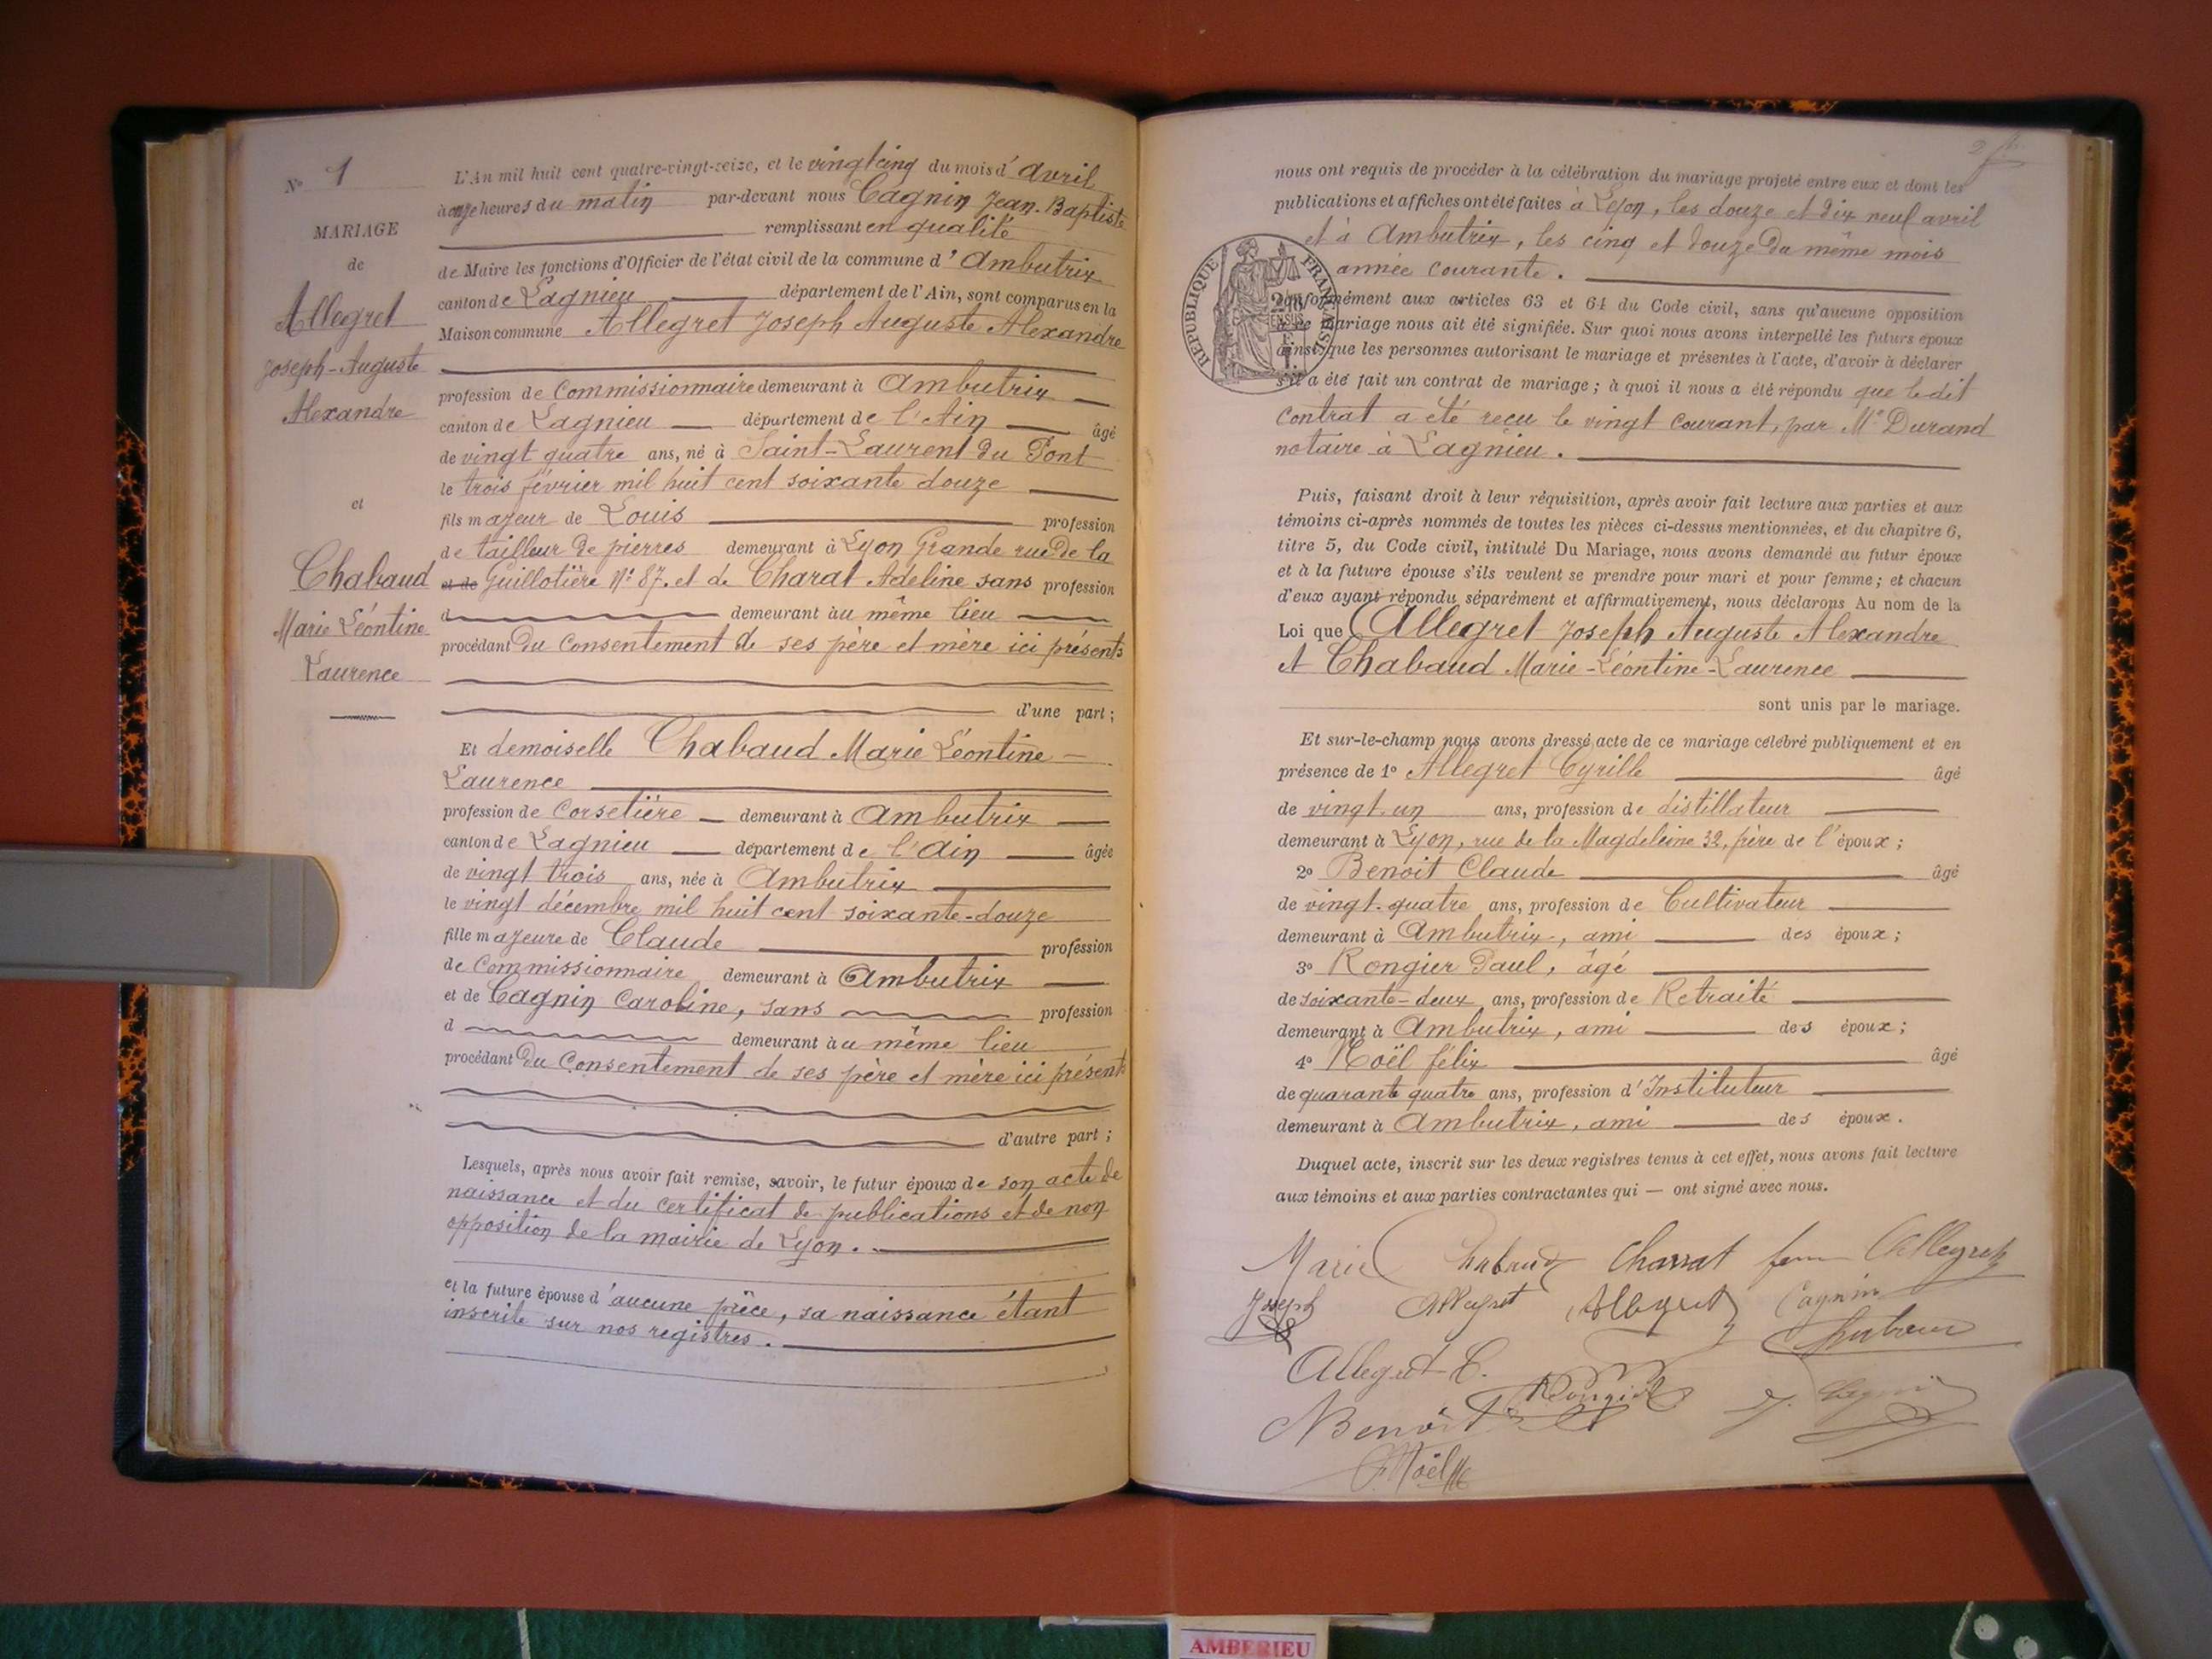 N° 1
MARIAGE
de
Allegret
Joseph-Auguste
Alexandre
et
Chabaud
Marie Léontine
Laurence
L'An mil huit cent quatre-vingt-seize, et le vingt cinq du mois d'avril
à onze heures du matin par-devant nous Cagnin Jean-Baptiste
remplissant en qualité
de Maire les fonctions d'Officier de l'état civil de la commune d'Ambutrix
canton de Lagnieu département de l'Ain, sont comparus en la
Maison commune Allegret Joseph Auguste Alexandre
profession de Commissionnaire demeurant à Ambutrix
canton de Lagnieu département de l'Ain âgé
de vingt quatre ans, né à Saint-Laurent du Pont
le trois février mil huit cent soixante douze
fils majeur de Louis profession
de tailleur de pierres demeurant à Lyon Grande rue de la
et de Guillotière N° 87. et de Charat Adeline sans profession
d demeurant au même lieu
procédant du consentement de ses père et mère ici présents
d'une part ;
Et demoiselle Chabaud Marie Léontine
Laurence
profession de Corsetière demeurant à Ambutrix
canton de Lagnieu département de l'Ain âgée
de vingt trois ans, née à Ambutrix
le vingt décembre mil huit cent soixante-douze
fille majeure de Claude profession
de Commissionnaire demeurant à Ambutrix
et de Cagnin Caroline, sans profession
d demeurant au même lieu
procédant du consentement de ses père et mère ici présents
d'autre part ;
Lesquels, après nous avoir fait remise, savoir, le futur époux de son acte de
naissance et du certificat de publications et de non
opposition de la mairie de Lyon.
et la future épouse d'aucune pièce, sa naissance étant
inscrite sur nos registres.
nous ont requis de procéder à la célébration du mariage projeté entre eux et dont les
publications et affiches ont été faites à Lyon, les douze et dix neuf avril
et à Ambutrix, les cinq et douze du même mois
année courante.
RÉPUBLIQUE FRANÇAISE
conformément aux articles 63 et 64 du Code civil, sans qu'aucune opposition
à ce mariage nous ait été signifiée. Sur quoi nous avons interpellé les futurs époux
ainsi que les personnes autorisant le mariage et présentes à l'acte, d'avoir à déclarer
s'il a été fait un contrat de mariage ; à quoi il nous a été répondu que le dit
contrat a été reçu le vingt courant, par Me Durand
notaire à Lagnieu.
Puis, faisant droit à leur réquisition, après avoir fait lecture aux parties et aux
témoins ci-après nommés de toutes les pièces ci-dessus mentionnées, et du chapitre 6,
titre 5, du Code civil, intitulé Du Mariage, nous avons demandé au futur époux
et à la future épouse s'ils veulent se prendre pour mari et pour femme ; et chacun
d'eux ayant répondu séparément et affirmativement, nous déclarons Au nom de la
Loi que Allegret Joseph Auguste Alexandre
et Chabaud Marie-Léontine-Laurence
sont unis par le mariage.
Et sur-le-champ nous avons dressé acte de ce mariage célébré publiquement et en
présence de 1° Allegret Cyrille âgé
de vingt-un ans, profession de distillateur
demeurant à Lyon, rue de la Magdeleine 32, frère de l'époux ;
2° Benoit Claude âgé
de vingt-quatre ans, profession de Cultivateur
demeurant à Ambutrix, ami des époux ;
3° Rongier Paul, âgé
de soixante-deux ans, profession de Retraité
demeurant à Ambutrix, ami des époux ;
4° Noël félix âgé
de quarante quatre ans, profession d'Instituteur
demeurant à Ambutrix, ami des époux.
Duquel acte, inscrit sur les deux registres tenus à cet effet, nous avons fait lecture
aux témoins et aux parties contractantes qui — ont signé avec nous.
Marie Chabaud Charrat fem Allegret
Joseph Allegret Allegret Cagnin
Chabaud
Allegret C.
Rongier
Benoit
F. Noël
AMBERIEU